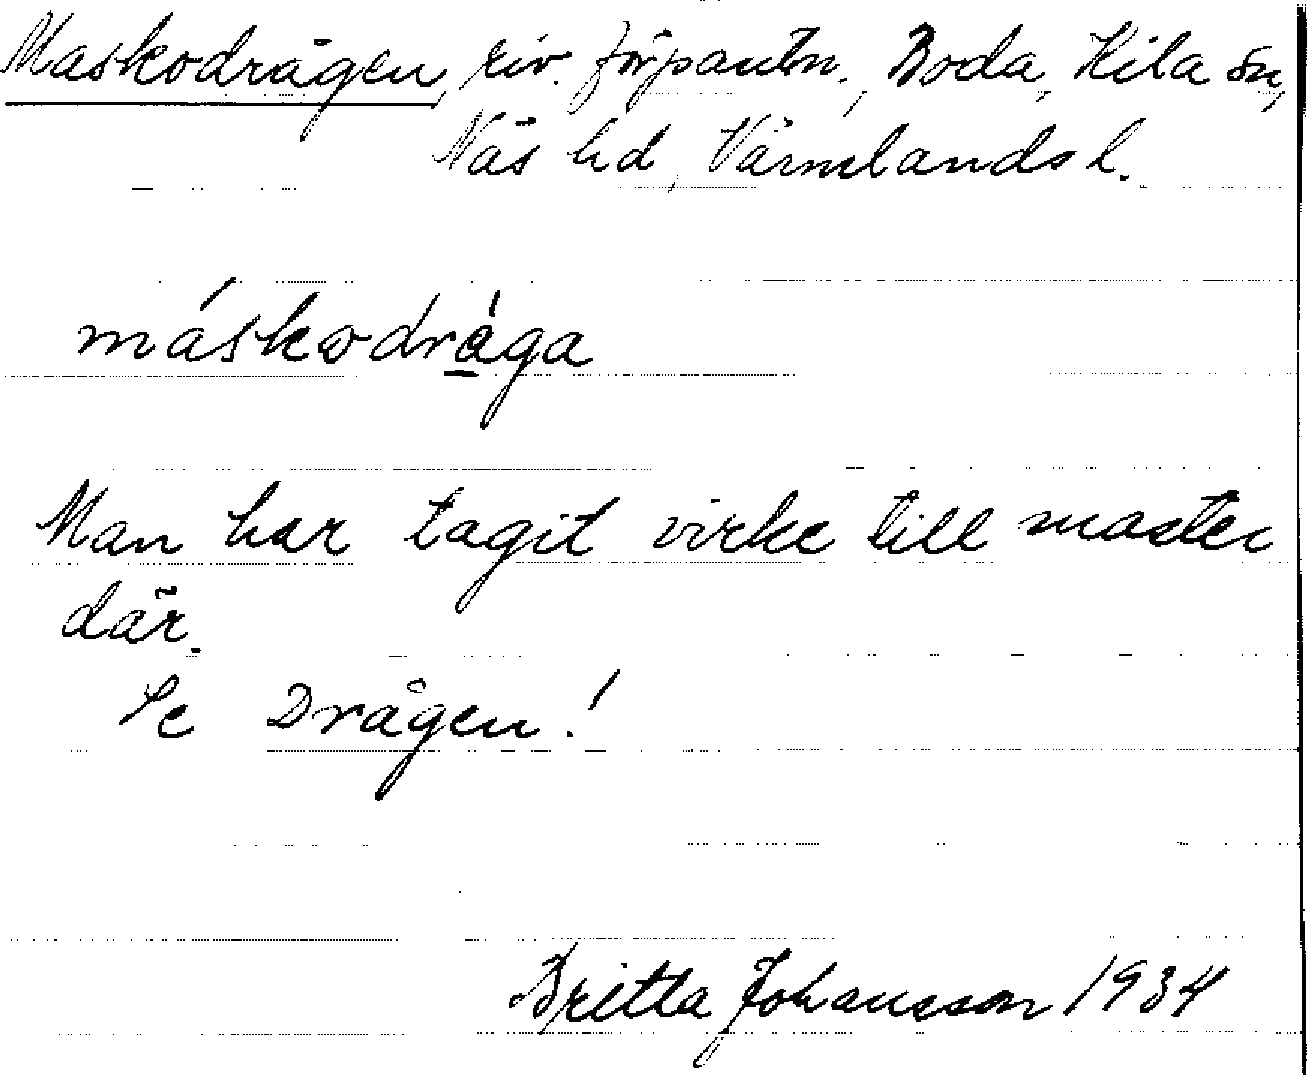 Maskodrågen, riv. förpantn., Boda, Kila sn,
Näs hd, Värmlands l.
máskodråga
Man har tagit virke till master
där.
Se Drågen!
Britta Johansson 1934